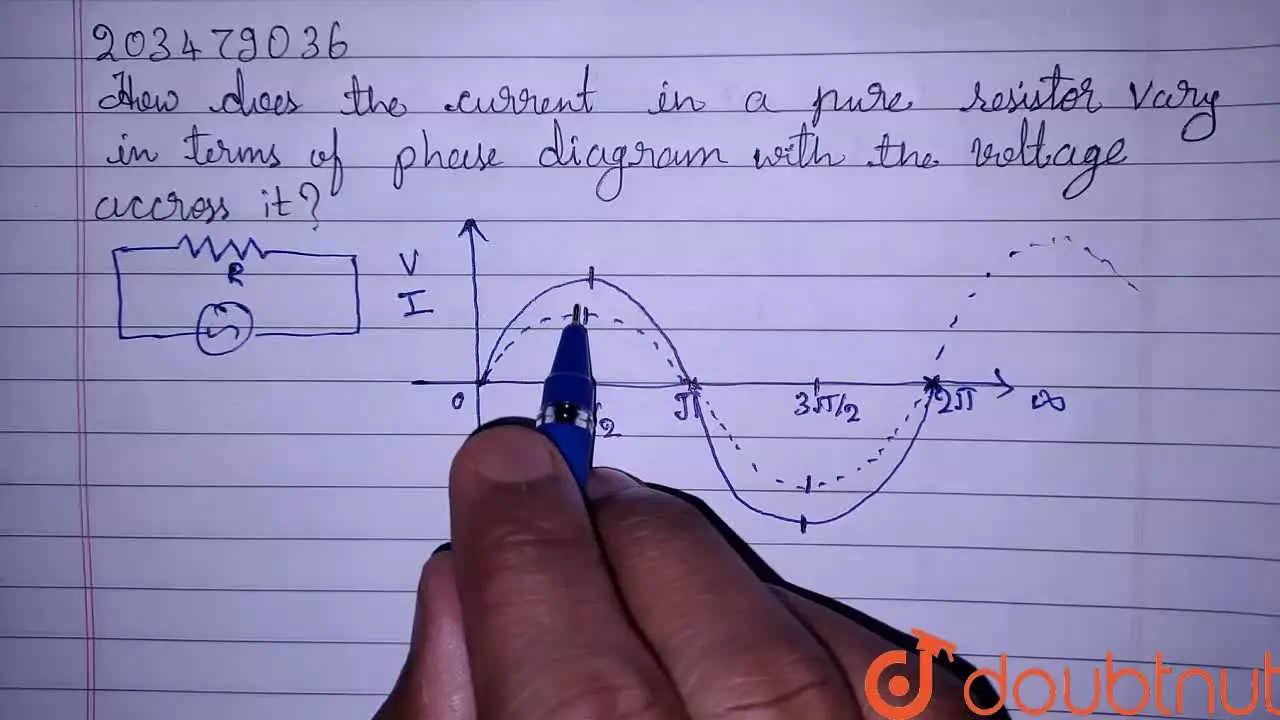 203479036
How does the current in a pure resistor vary
in terms of phase diagram with the voltage
accross it?
R
V
I
0
2
π
3π/2
2π
∞
doubtnut